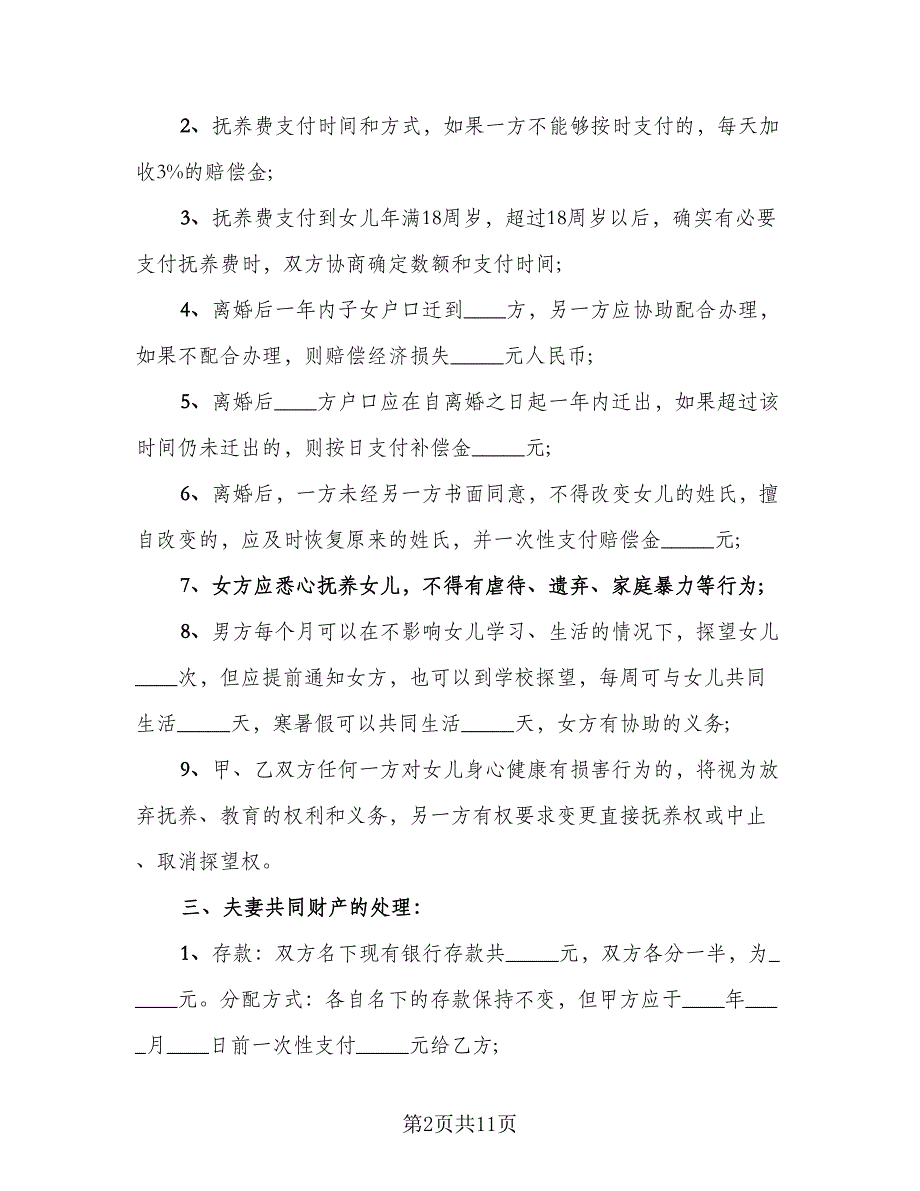 2、抚养费支付时间和方式，如果一方不能够按时支付的，每天加
收3%的赔偿金;
3、抚养费支付到女儿年满18周岁，超过18周岁以后，确实有必要
支付抚养费时，双方协商确定数额和支付时间;
4、离婚后一年内子女户口迁到____方，另一方应协助配合办理，
如果不配合办理，则赔偿经济损失_____元人民币;
5、离婚后____方户口应在自离婚之日起一年内迁出，如果超过该
时间仍未迁出的，则按日支付补偿金_____元;
6、离婚后，一方未经另一方书面同意，不得改变女儿的姓氏，擅
自改变的，应及时恢复原来的姓氏，并一次性支付赔偿金_____元;
7、女方应悉心抚养女儿，不得有虐待、遗弃、家庭暴力等行为;
8、男方每个月可以在不影响女儿学习、生活的情况下，探望女儿
____次，但应提前通知女方，也可以到学校探望，每周可与女儿共同
生活_____天，寒暑假可以共同生活_____天，女方有协助的义务;
9、甲、乙双方任何一方对女儿身心健康有损害行为的，将视为放
弃抚养、教育的权利和义务，另一方有权要求变更直接抚养权或中止
、取消探望权。
三、夫妻共同财产的处理：
1、存款：双方名下现有银行存款共_____元，双方各分一半，为_
____元。分配方式：各自名下的存款保持不变，但甲方应于____年___
_月____日前一次性支付_____元给乙方;
第2页共11页